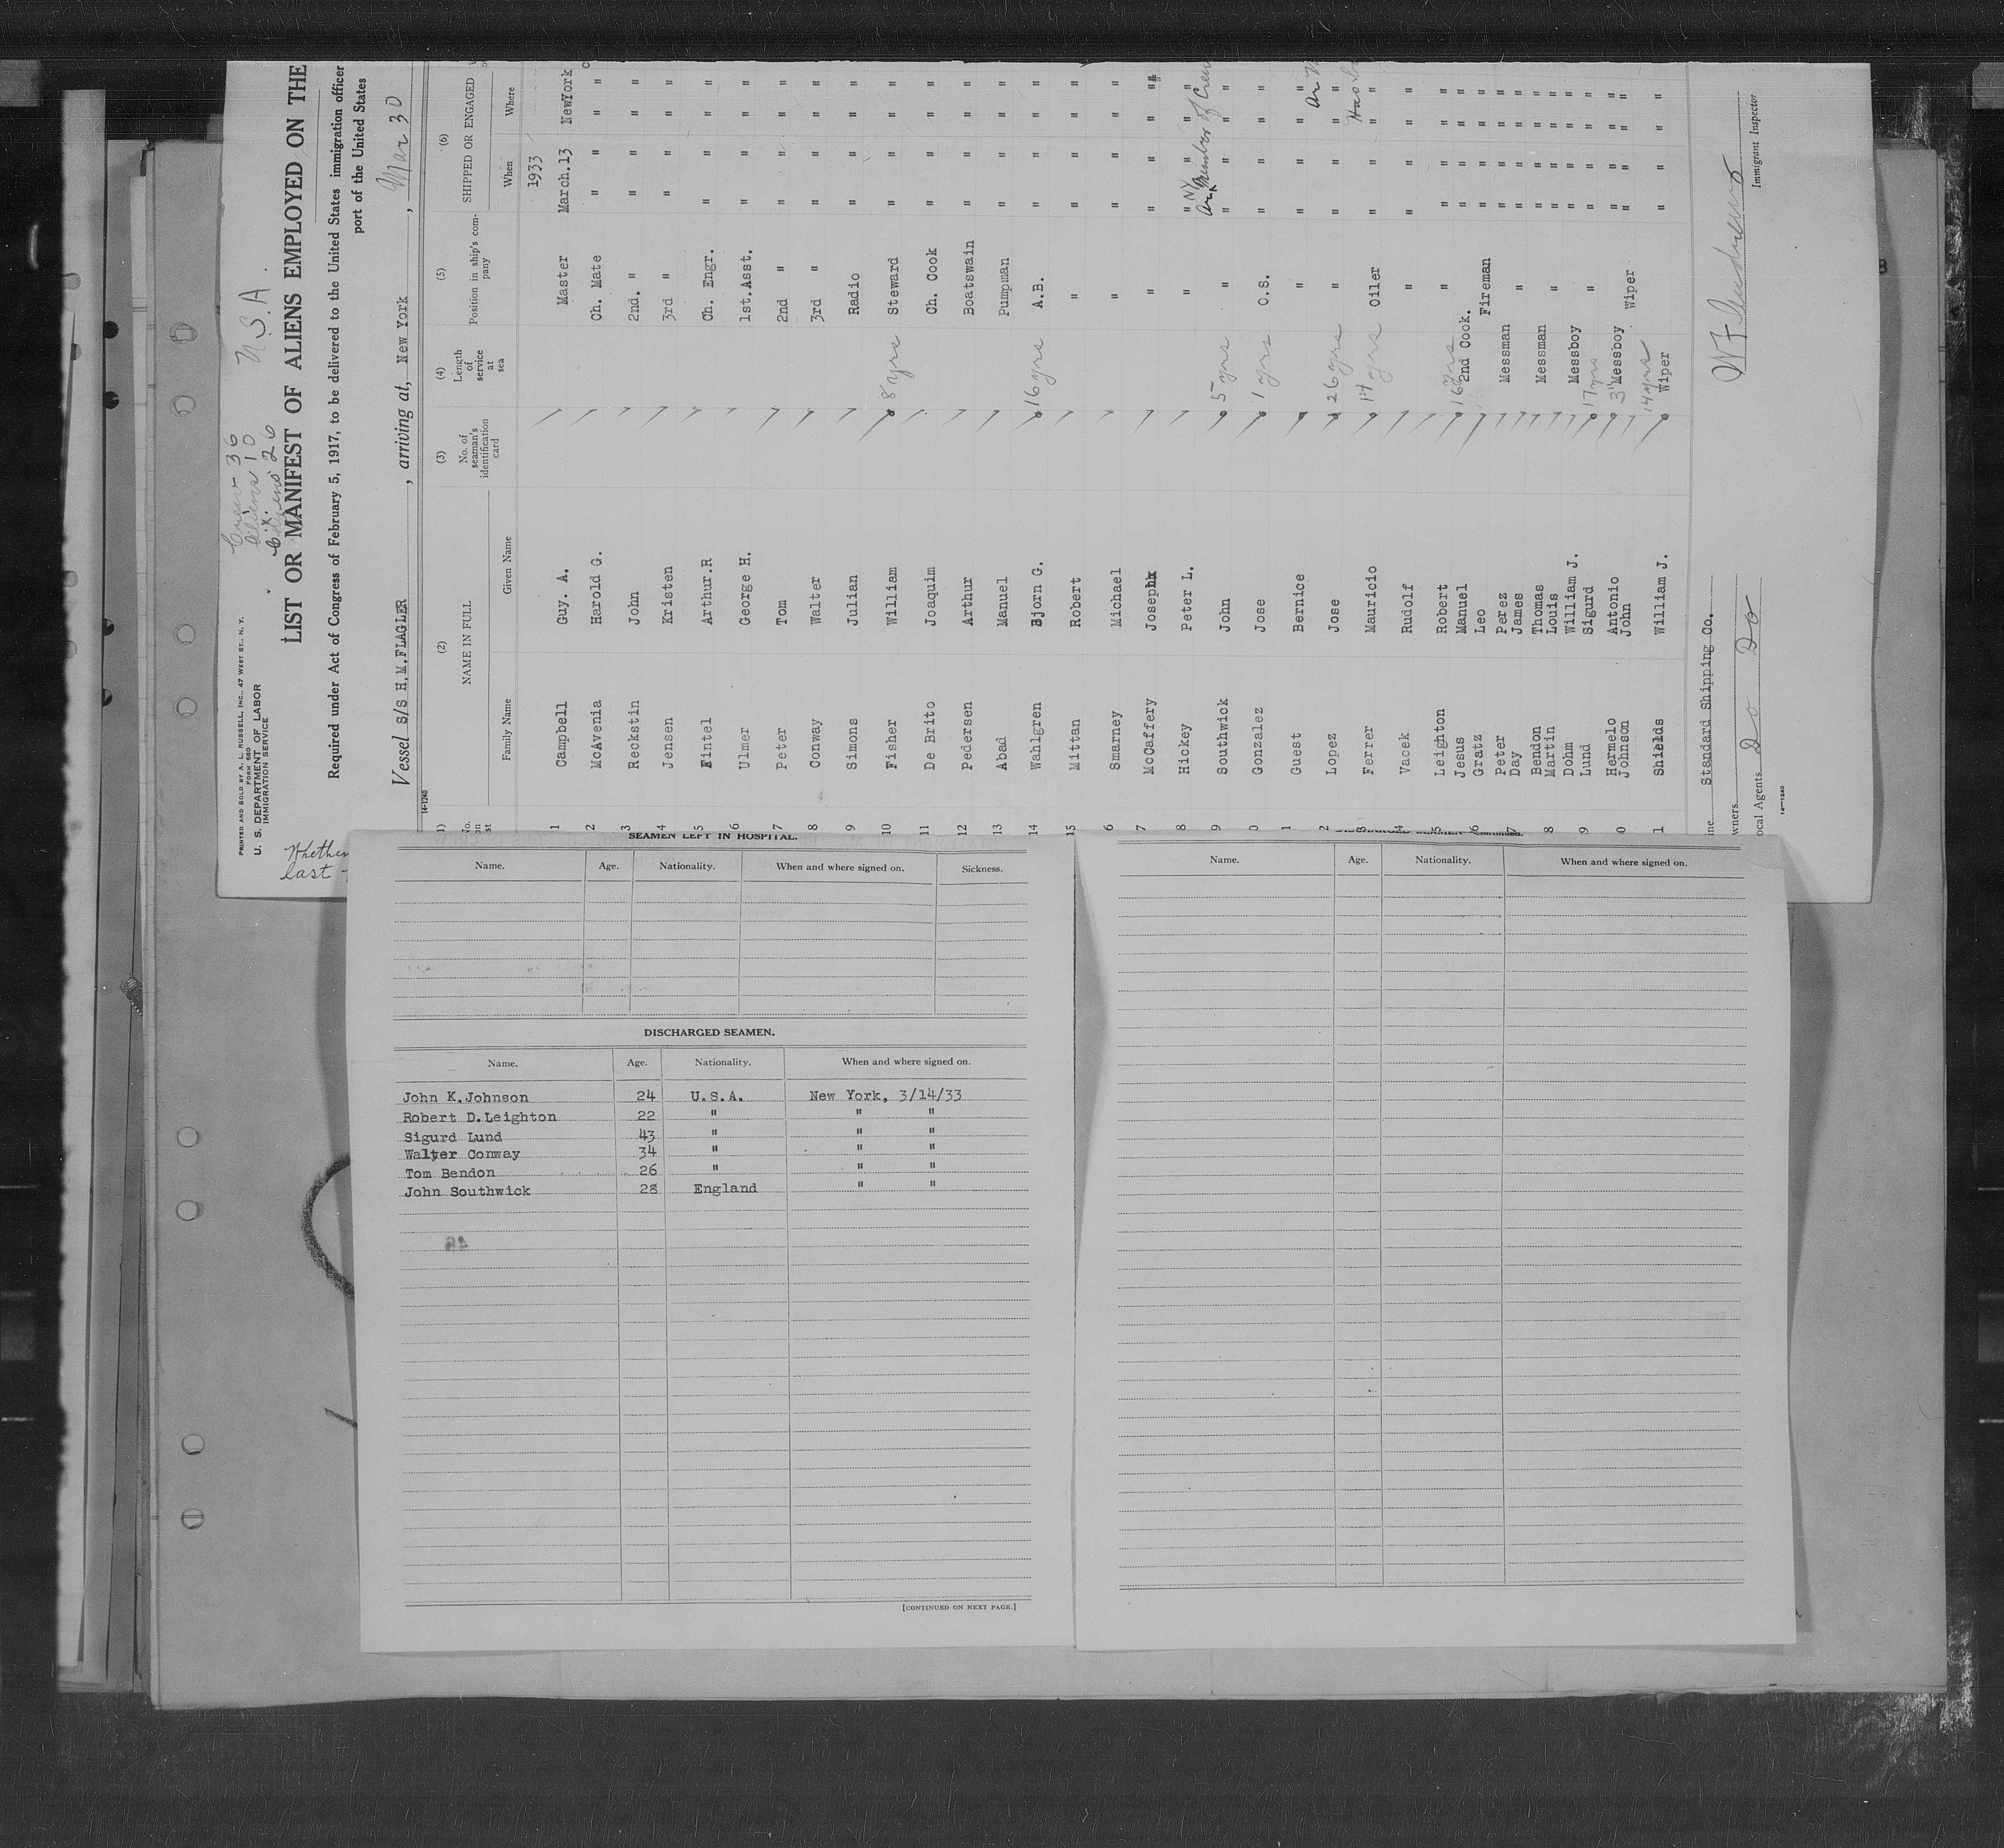 Crew 36
Aliens 10
Citizens 26
U.S.A.
PRINTED AND SOLD BY A. L. RUSSELL, INC., 47 WEST ST., N. Y.
FORM 680
U. S. DEPARTMENT OF LABOR
IMMIGRATION SERVICE
Whether
last
LIST OR MANIFEST OF ALIENS EMPLOYED ON THE
Required under Act of Congress of February 5, 1917, to be delivered to the United States immigration officer
port of the United States
Vessel S/S H.M.FLAGLER, arriving at, New York, Mar 30
14-1240
(2) (3) (4) (5) (6)
NAME IN FULL No. of seaman's identification card Length of service at sea Position in ship's company SHIPPED OR ENGAGED
Family Name Given Name When Where
1933
1 Campbell Guy. A. Master March.13 NewYork
2 McAvenia Harold G. Ch. Mate " " " "
3 Reckstin John 2nd. " " " " "
4 Jensen Kristen 3rd " " " " "
5 Eintel Arthur.R Ch. Engr. " " " "
6 Ulmer George H. 1st.Asst. " " " "
7 Peter Tom 2nd " " " " "
8 Conway Walter 3rd " " " " "
9 Simons Julian Radio " " " "
10 Fisher William 8 yrs Steward " " " "
11 De Brito Joaquim Ch. Cook " " " "
12 Pedersen Arthur Boatswain " " " "
13 Abad Manuel Pumpman " " " "
14 Wahlgren Bjorn G. 16 yrs A.B. " " " "
15 Mittan Robert " " " " "
6 Smarney Michael " " " " "
7 McCaffery Joseph " " " " "
8 Hickey Peter L. " " " " "
9 Southwick John 5 yrs " " " " "
0 Gonzalez Jose 1 yrs O.S. " " " "
1 Guest Bernice " " " " "
2 Lopez Jose 26 yrs " " " " "
3 Ferrer Mauricio 14 yrs Oiler " " " "
4 Vacek Rudolf " " " " "
5 Leighton Robert " " " " "
Jesus Manuel 16 yrs 2nd Cook. " " " "
6 Gratz Leo Fireman " " " "
Peter Perez Messman " " " "
7 Day James " " " " "
Bendon Thomas Messman " " " "
8 Martin Louis " " " " "
Dohm William J. Messboy " " " "
9 Lund Sigurd 17 yrs " " " " "
Hermelo Antonio 3 " Messboy " " " "
0 Johnson John Wiper " " " "
1 Shields William J. 14 yrs Wiper " " " "
Standard Shipping Co.
wners
ocal Agents Do Do
Immigrant Inspector
14-1240
SEAMEN LEFT IN HOSPITAL.
Name. Age. Nationality. When and where signed on. Sickness.
DISCHARGED SEAMEN.
Name. Age. Nationality. When and where signed on.
John K.Johnson 24 U.S.A. New York, 3/14/33
Robert D.Leighton 22 " " "
Sigurd Lund 43 " " "
Walter Conway 34 " " "
Tom Bendon 26 " " "
John Southwick 28 England " "
[CONTINUED ON NEXT PAGE.]
Name. Age. Nationality. When and where signed on.